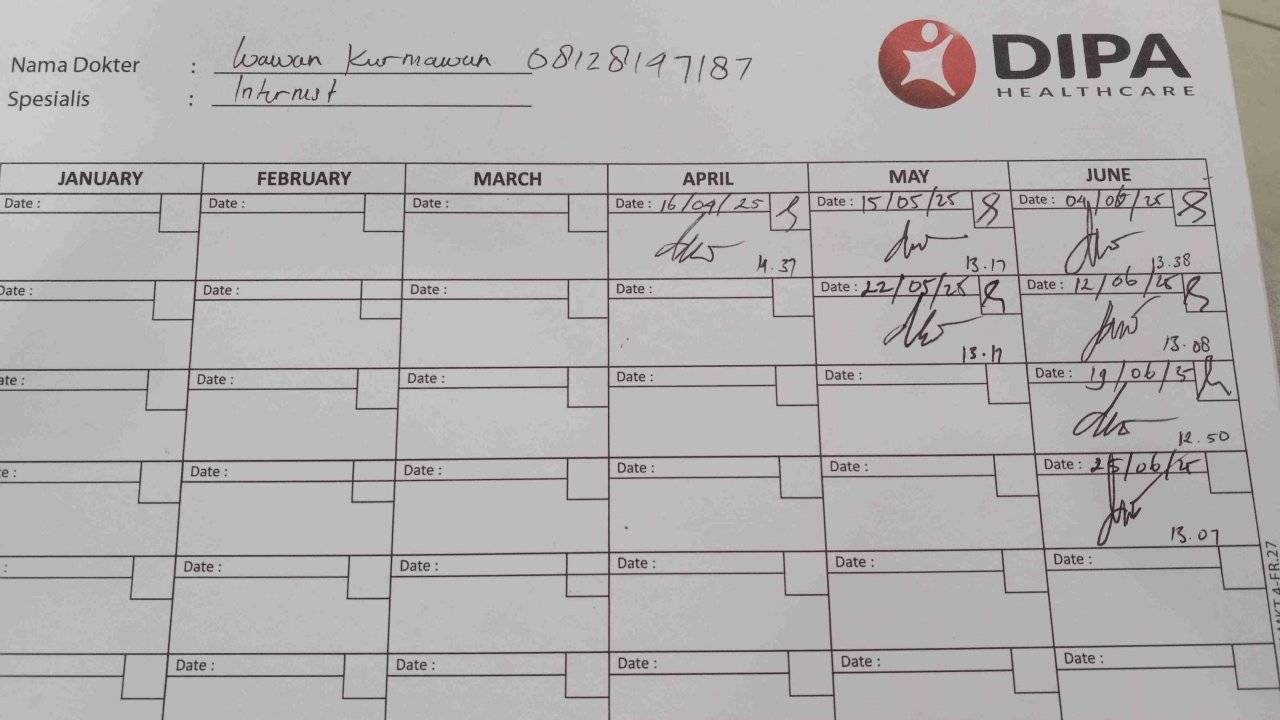 DIPA
HEALTHCARE
Nama Dokter : Wawan Kurniawan 08128197187
Spesialis : Internist
JANUARY FEBRUARY MARCH APRIL MAY JUNE
Date : Date : Date : Date : 16/04/25 Date : 15/05/25 Date : 04/06/25
13.17 13.38
Date : Date : Date : Date : Date : 22/05/25 Date : 12/06/25
13.17 13.08
ate : Date : Date : Date : Date : Date : 19/06/25
12.50
e : Date : Date : Date : Date : Date : 25/06/25
13.07
: Date : Date : Date : Date : Date :
Date : Date : Date : Date : Date :
MKT.4-FR.27